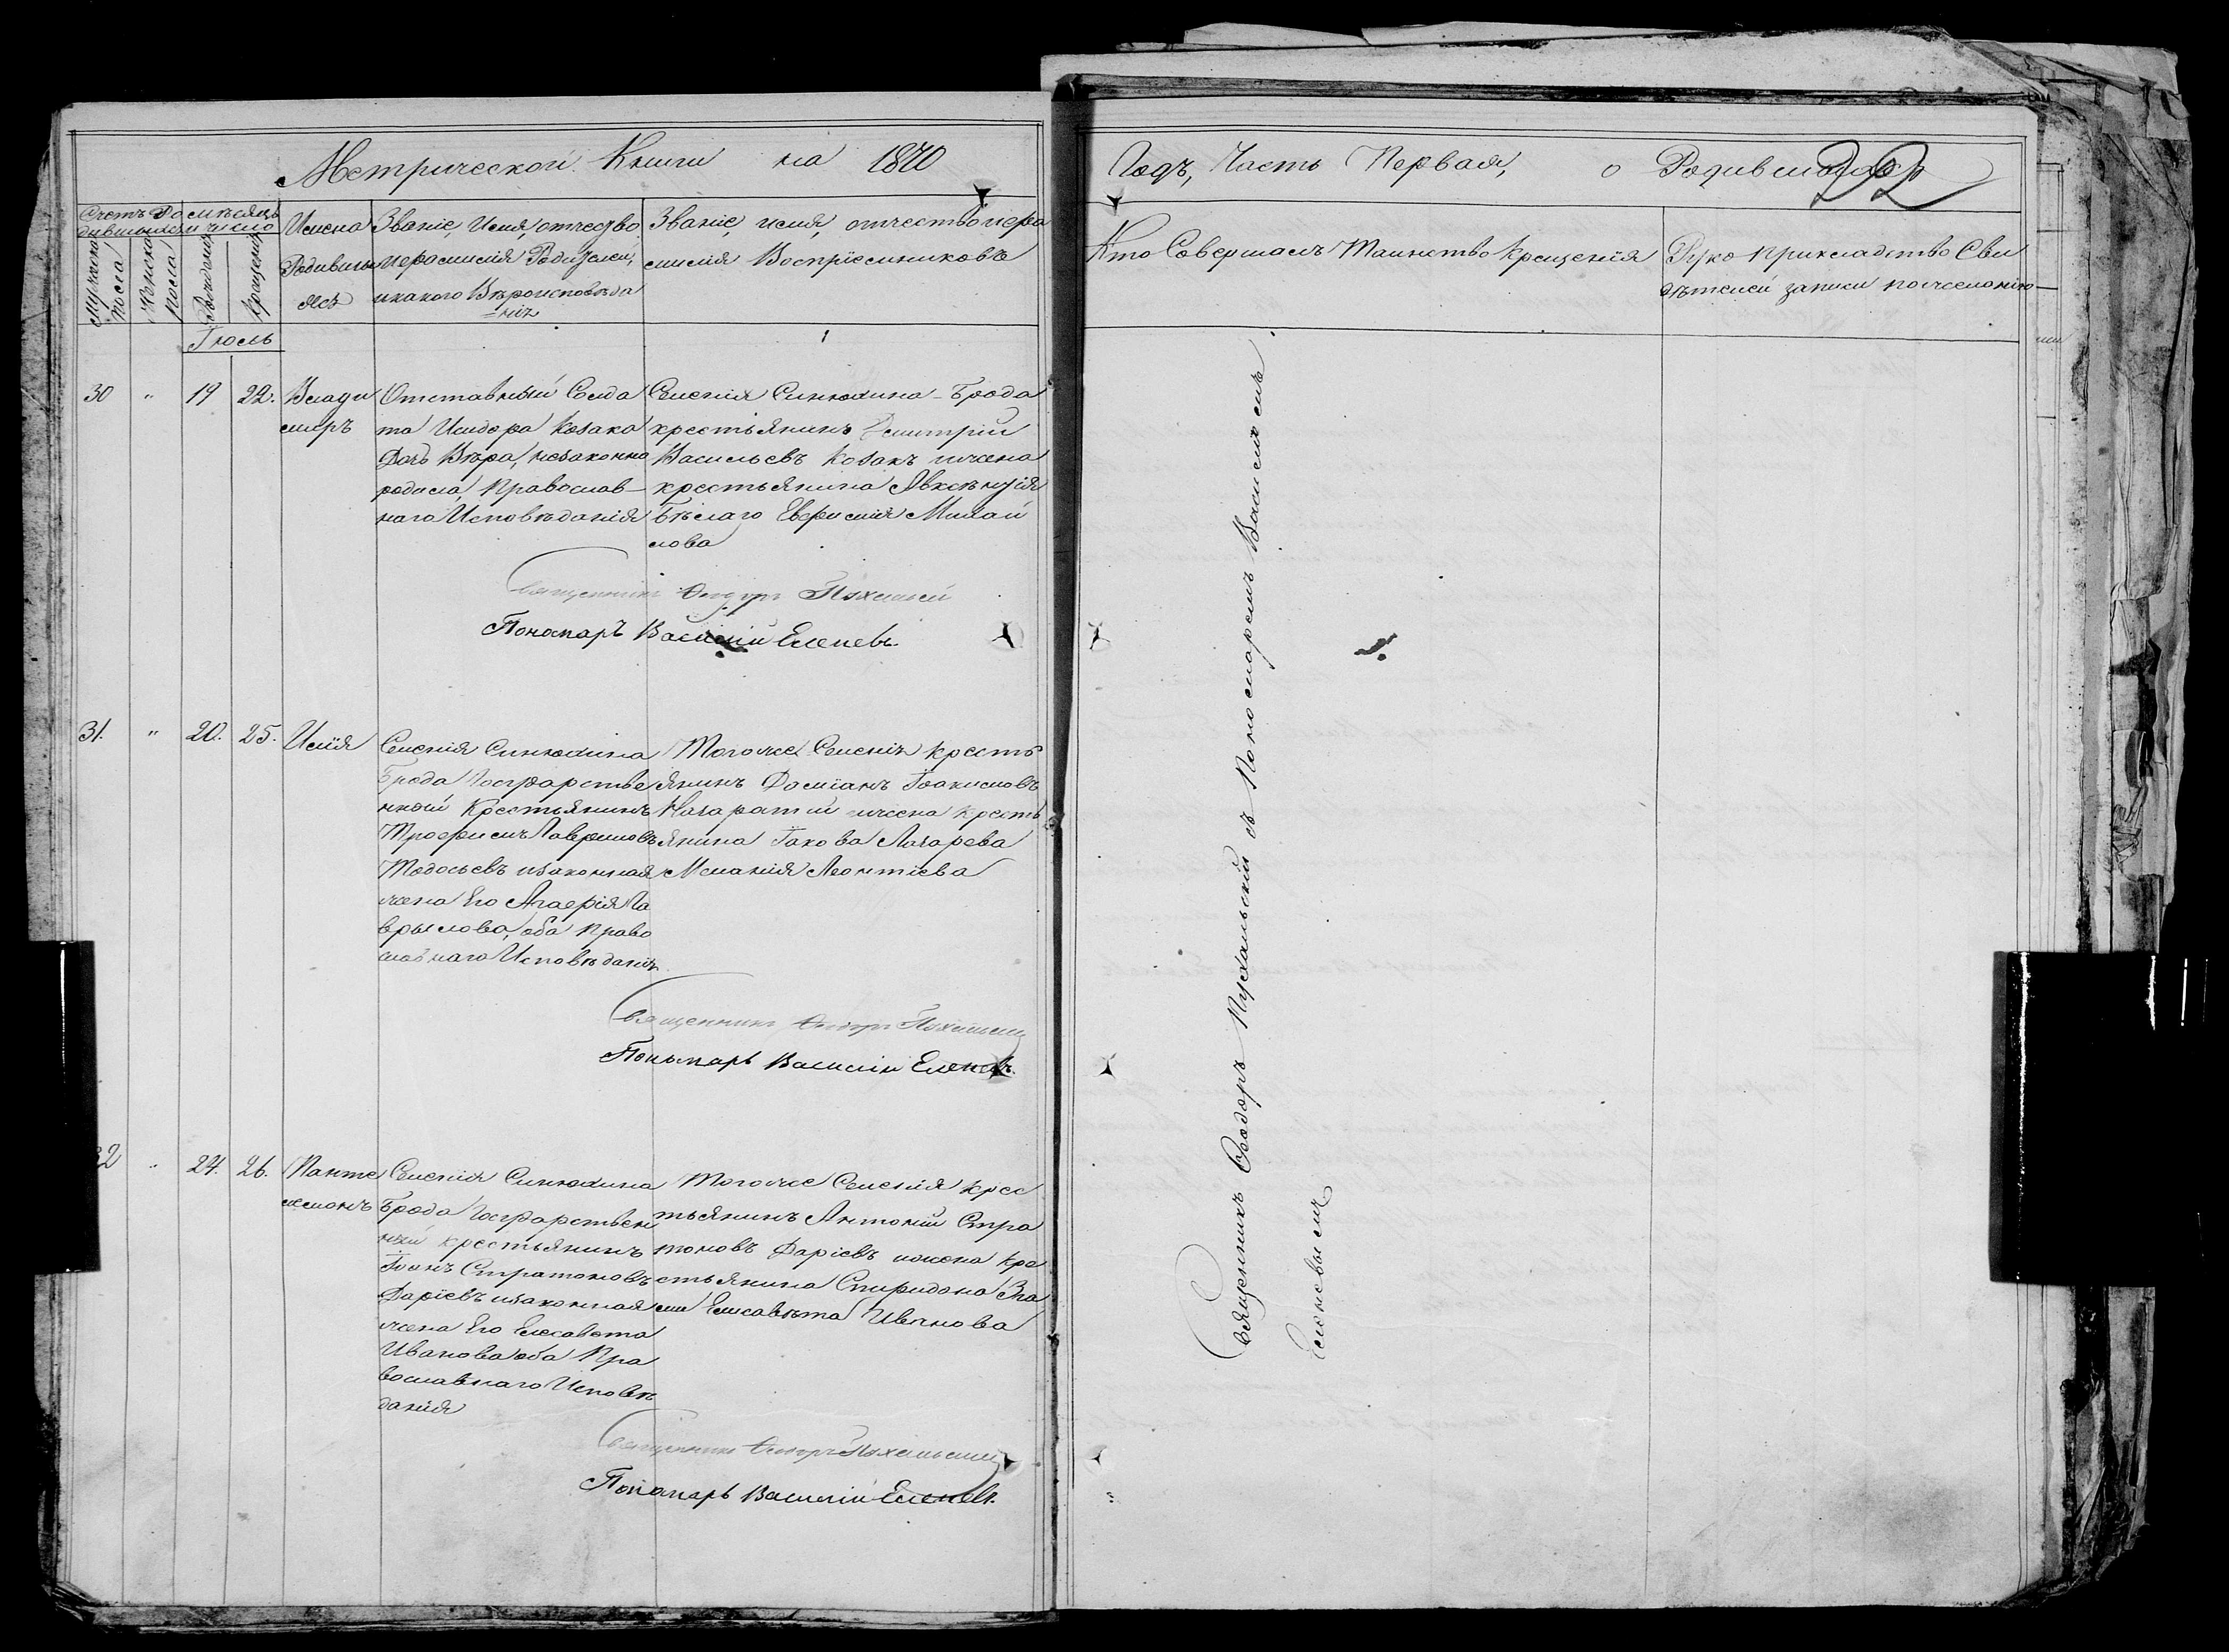 Метрической Книги на 1870
Годъ, Часть Первая, о Родившихся
22
Счетъ Ро
дившихся
Мѣсяцъ
и число
Мужеска
пола
Женска
пола
Рожденія
Крещенія
Имена
Родивших
ся
Званіе, Имя, отчество
и фамилія Родителей,
и какого Вѣроисповѣда
=нія
Званіе, имя, отчество и фа
милія Воспріемниковъ
Кто Совершалъ Таинство Крещенія
Руко прикладство Сви
дѣтелей записи по желанію
Іюль
30 " 19 22.
Влади
миръ
Отставный Солда
та Исидора Козака
Дочь Вѣра, незаконно
родила, Православ
наго Исповѣданія
Селенія Синюхина-Брода
крестьянинъ Димитрій
Васильевъ Козакъ и жена
крестьянина Авксентія
Бѣлаго Евфимія Михай
лова
Священникъ Ѳеодоръ Пухальскій
Пономарь Василій Еленевъ.
31. " 20. 25.
Илія
Селенія Синюхина
Брода Государстве
нный Крестьянинъ
Трофимъ Гавриловъ
Тодосьевъ и законная
жена Его Агафія Га
врилова, оба Право
славнаго Исповѣданія
Того же Селенія Кресть
янинъ Даміанъ Іоакимовъ
Назаратій и жена Кресть
янина Іакова Лазарева
Меланія Леонтіева
Священникъ Ѳеодоръ Пухальскій
Пономарь Василій Еленевъ.
32 " 24. 26.
Панте
леимонъ
Селенія Синюхина
Брода Государствен
ный крестьянинъ
Іоанъ Стратоновъ
Даріевъ и законная
жена Его Елисавета
Иванова оба Пра
вославнаго Исповѣ
данія
Того же Селенія Крес
тьянинъ Антоній Стра
тоновъ Даріевъ и жена Кре
стьянина Спиридона
Елисавѣта Иванова
Священникъ Ѳеодоръ Пухальскій
Пономарь Василій Еленевъ.
Священникъ Ѳеодоръ Пухальскій съ Пономаремъ Василіемъ
Еленевымъ